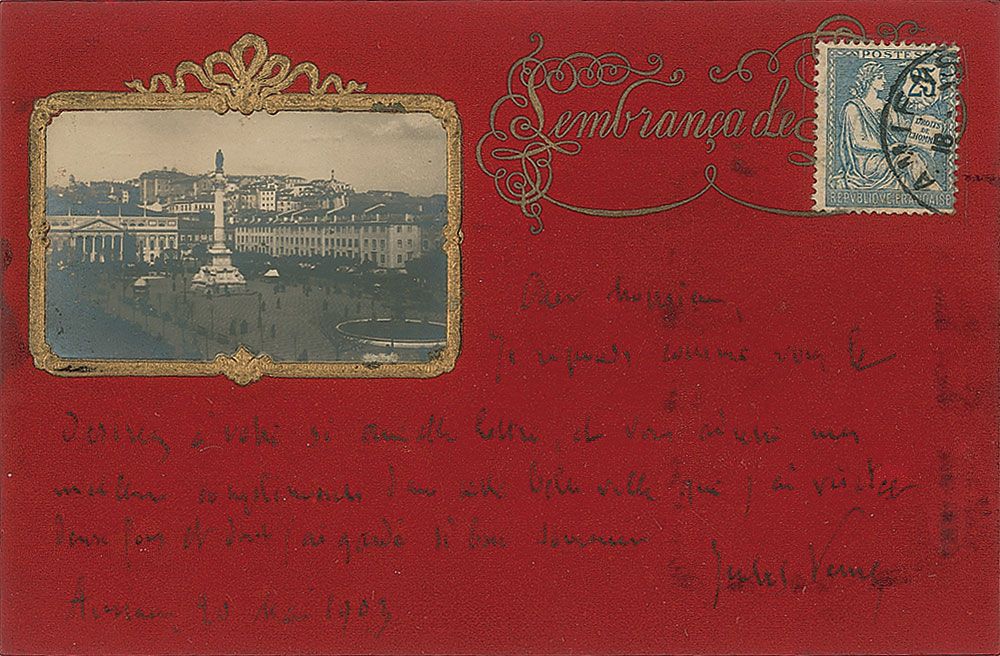 Lembrança de
POSTES
25
DROITS
DE
L'HOMME
REPUBLIQUE FRANÇAISE
Cher Monsieur,
Je réponds comme vous le
désirez à votre si aimable lettre, et vous adresse mes
meilleurs compliments cette belle ville que j'ai visitée
deux fois et dont j'ai gardé si bon souvenir
Jules Verne
Amiens, 20 Mai 1903